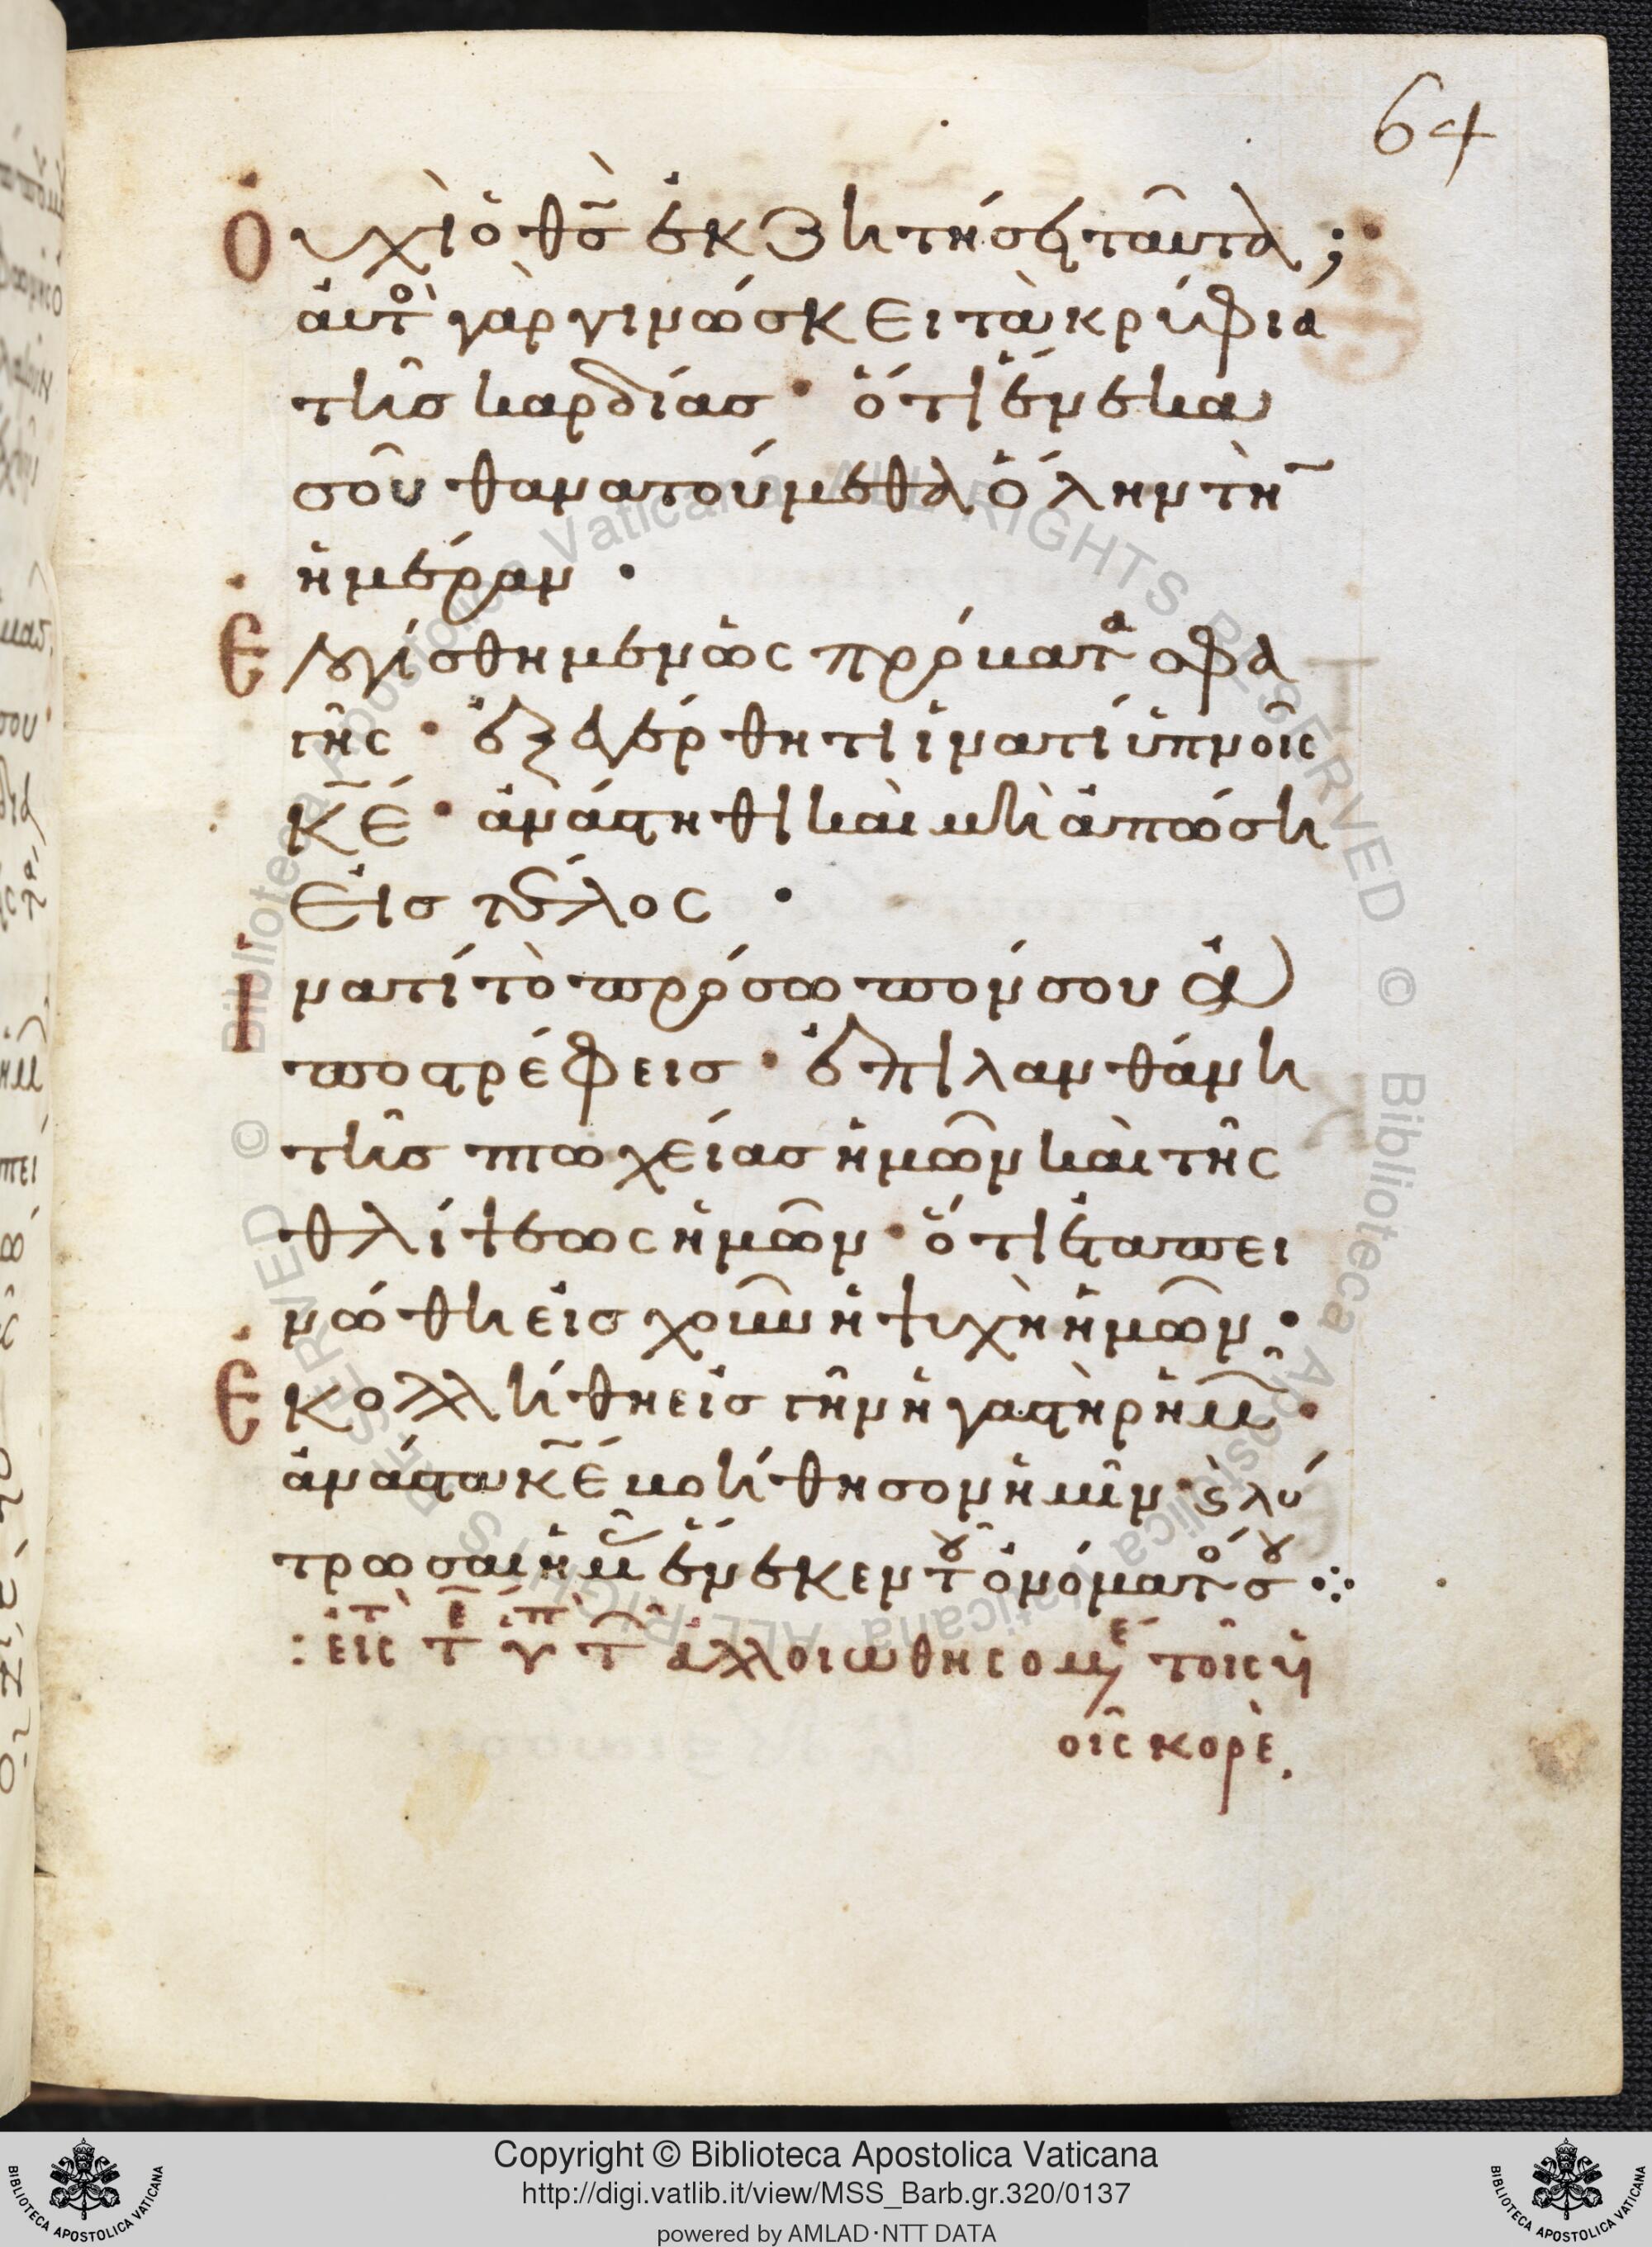 64
Οὐχὶ ὁ θσ̃ ἐκζητήσει ταῦτα ;
ἀυτὸ γὰρ γινώσκει τὰ κρύφια
τῆσ καρδίασ · ὅτι ἕνεκα
σοῦ θανατούμεθα ὅλην τὴ
ἡμέραν ·
Ἐλογίσθημεν ὡς πρόβατα σφα
γῆς · ἐξεγέρθητι ἱνατί ὑπνοῖς
κ̃ε · ἀνάστηθι καὶ μὴ ἀπώση
εἰσ τέλος ·
Ἱνατί τὸ πρόσωπόν σου ἀ
ποστρέφεισ · ἐπιλανθάνη
τῆσ πτωχείασ ἡμῶν καὶ τῆς
θλίψεως ἡμῶν · ὅτι ἐταπει
νώθη εἰσ χοῦν ἡ ψυχὴ ἡμῶν ·
Ἐκολλήθη εἰσ γῆν ἡ γαστὴρ ἡμ ·
ἀνάστα κ̃ε βοήθησον ἡμῖν · ϗ λύ
τρωσαι ἡμ ἕνεκεν τοῦ ὀνόματός σου ⁘
: εἰς τ τ ἀλλοιωθησομέ τοῖς υ
οῖς κορὲ .
Copyright © Biblioteca Apostolica Vaticana
http://digi.vatlib.it/view/MSS_Barb.gr.320/0137
powered by AMLAD·NTT DATA
BIBLIOTECA APOSTOLICA VATICANA
BIBLIOTECA APOSTOLICA VATICANA